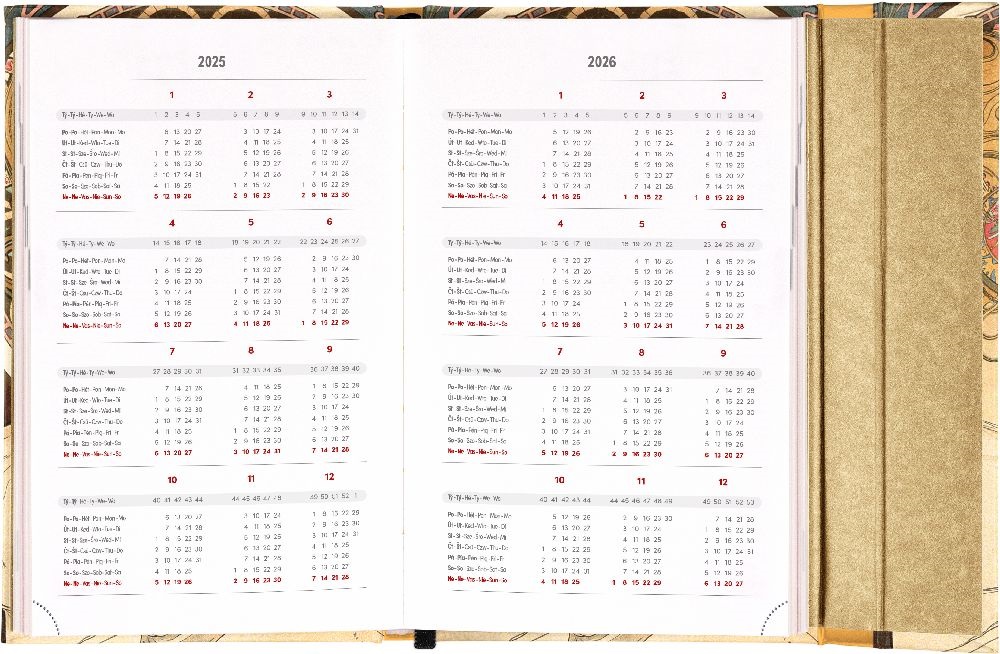 2025
1 2 3
Tý-Tý-Hé-Ty-We-Wo 1 2 3 4 5 5 6 7 8 9 9 10 11 12 13 14
Po-Po-Hét-Pon-Mon-Mo 6 13 20 27 3 10 17 24 3 10 17 24 31
Út-Ut-Ked-Wto-Tue-Di 7 14 21 28 4 11 18 25 4 11 18 25
St-St-Sze-Śro-Wed-Mi 1 8 15 22 29 5 12 19 26 5 12 19 26
Čt-Št-Csü-Czw-Thu-Do 2 9 16 23 30 6 13 20 27 6 13 20 27
Pá-Pia-Pén-Pią-Fri-Fr 3 10 17 24 31 7 14 21 28 7 14 21 28
So-So-Szo-Sob-Sat-Sa 4 11 18 25 1 8 15 22 1 8 15 22 29
Ne-Ne-Vas-Nie-Sun-So 5 12 19 26 2 9 16 23 2 9 16 23 30
4 5 6
Tý-Tý-Hé-Ty-We-Wo 14 15 16 17 18 18 19 20 21 22 22 23 24 25 26 27
Po-Po-Hét-Pon-Mon-Mo 7 14 21 28 5 12 19 26 2 9 16 23 30
Út-Ut-Ked-Wto-Tue-Di 1 8 15 22 29 6 13 20 27 3 10 17 24
St-St-Sze-Śro-Wed-Mi 2 9 16 23 30 7 14 21 28 4 11 18 25
Čt-Št-Csü-Czw-Thu-Do 3 10 17 24 1 8 15 22 29 5 12 19 26
Pá-Pia-Pén-Pią-Fri-Fr 4 11 18 25 2 9 16 23 30 6 13 20 27
So-So-Szo-Sob-Sat-Sa 5 12 19 26 3 10 17 24 31 7 14 21 28
Ne-Ne-Vas-Nie-Sun-So 6 13 20 27 4 11 18 25 1 8 15 22 29
7 8 9
Tý-Tý-Hé-Ty-We-Wo 27 28 29 30 31 31 32 33 34 35 36 37 38 39 40
Po-Po-Hét-Pon-Mon-Mo 7 14 21 28 4 11 18 25 1 8 15 22 29
Út-Ut-Ked-Wto-Tue-Di 1 8 15 22 29 5 12 19 26 2 9 16 23 30
St-St-Sze-Śro-Wed-Mi 2 9 16 23 30 6 13 20 27 3 10 17 24
Čt-Št-Csü-Czw-Thu-Do 3 10 17 24 31 7 14 21 28 4 11 18 25
Pá-Pia-Pén-Pią-Fri-Fr 4 11 18 25 1 8 15 22 29 5 12 19 26
So-So-Szo-Sob-Sat-Sa 5 12 19 26 2 9 16 23 30 6 13 20 27
Ne-Ne-Vas-Nie-Sun-So 6 13 20 27 3 10 17 24 31 7 14 21 28
10 11 12
Tý-Tý-Hé-Ty-We-Wo 40 41 42 43 44 44 45 46 47 48 49 50 51 52 1
Po-Po-Hét-Pon-Mon-Mo 6 13 20 27 3 10 17 24 1 8 15 22 29
Út-Ut-Ked-Wto-Tue-Di 7 14 21 28 4 11 18 25 2 9 16 23 30
St-St-Sze-Śro-Wed-Mi 1 8 15 22 29 5 12 19 26 3 10 17 24 31
Čt-Št-Csü-Czw-Thu-Do 2 9 16 23 30 6 13 20 27 4 11 18 25
Pá-Pia-Pén-Pią-Fri-Fr 3 10 17 24 31 7 14 21 28 5 12 19 26
So-So-Szo-Sob-Sat-Sa 4 11 18 25 1 8 15 22 29 6 13 20 27
Ne-Ne-Vas-Nie-Sun-So 5 12 19 26 2 9 16 23 30 7 14 21 28
2026
1 2 3
Tý-Tý-Hé-Ty-We-Wo 1 2 3 4 5 5 6 7 8 9 9 10 11 12 13 14
Po-Po-Hét-Pon-Mon-Mo 5 12 19 26 2 9 16 23 2 9 16 23 30
Út-Ut-Ked-Wto-Tue-Di 6 13 20 27 3 10 17 24 3 10 17 24 31
St-St-Sze-Śro-Wed-Mi 7 14 21 28 4 11 18 25 4 11 18 25
Čt-Št-Csü-Czw-Thu-Do 1 8 15 22 29 5 12 19 26 5 12 19 26
Pá-Pia-Pén-Pią-Fri-Fr 2 9 16 23 30 6 13 20 27 6 13 20 27
So-So-Szo-Sob-Sat-Sa 3 10 17 24 31 7 14 21 28 7 14 21 28
Ne-Ne-Vas-Nie-Sun-So 4 11 18 25 1 8 15 22 1 8 15 22 29
4 5 6
Tý-Tý-Hé-Ty-We-Wo 14 15 16 17 18 18 19 20 21 22 23 24 25 26 27
Po-Po-Hét-Pon-Mon-Mo 6 13 20 27 4 11 18 25 1 8 15 22 29
Út-Ut-Ked-Wto-Tue-Di 7 14 21 28 5 12 19 26 2 9 16 23 30
St-St-Sze-Śro-Wed-Mi 1 8 15 22 29 6 13 20 27 3 10 17 24
Čt-Št-Csü-Czw-Thu-Do 2 9 16 23 30 7 14 21 28 4 11 18 25
Pá-Pia-Pén-Pią-Fri-Fr 3 10 17 24 1 8 15 22 29 5 12 19 26
So-So-Szo-Sob-Sat-Sa 4 11 18 25 2 9 16 23 30 6 13 20 27
Ne-Ne-Vas-Nie-Sun-So 5 12 19 26 3 10 17 24 31 7 14 21 28
7 8 9
Tý-Tý-Hé-Ty-We-Wo 27 28 29 30 31 31 32 33 34 35 36 36 37 38 39 40
Po-Po-Hét-Pon-Mon-Mo 6 13 20 27 3 10 17 24 31 7 14 21 28
Út-Ut-Ked-Wto-Tue-Di 7 14 21 28 4 11 18 25 1 8 15 22 29
St-St-Sze-Śro-Wed-Mi 1 8 15 22 29 5 12 19 26 2 9 16 23 30
Čt-Št-Csü-Czw-Thu-Do 2 9 16 23 30 6 13 20 27 3 10 17 24
Pá-Pia-Pén-Pią-Fri-Fr 3 10 17 24 31 7 14 21 28 4 11 18 25
So-So-Szo-Sob-Sat-Sa 4 11 18 25 1 8 15 22 29 5 12 19 26
Ne-Ne-Vas-Nie-Sun-So 5 12 19 26 2 9 16 23 30 6 13 20 27
10 11 12
Tý-Tý-Hé-Ty-We-Wo 40 41 42 43 44 44 45 46 47 48 49 49 50 51 52 53
Po-Po-Hét-Pon-Mon-Mo 5 12 19 26 2 9 16 23 30 7 14 21 28
Út-Ut-Ked-Wto-Tue-Di 6 13 20 27 3 10 17 24 1 8 15 22 29
St-St-Sze-Śro-Wed-Mi 7 14 21 28 4 11 18 25 2 9 16 23 30
Čt-Št-Csü-Czw-Thu-Do 1 8 15 22 29 5 12 19 26 3 10 17 24 31
Pá-Pia-Pén-Pią-Fri-Fr 2 9 16 23 30 6 13 20 27 4 11 18 25
So-So-Szo-Sob-Sat-Sa 3 10 17 24 31 7 14 21 28 5 12 19 26
Ne-Ne-Vas-Nie-Sun-So 4 11 18 25 1 8 15 22 29 6 13 20 27